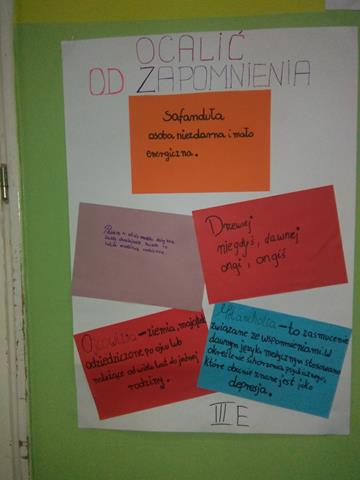 OCALIĆ
OD ZAPOMNIENIA
Safanduła
osoba niezdarna i mało
energiczna.
Drzewiej
niegdyś, dawnej
ongi, ongiś
Ojcowizna – ziemia, majątek
odziedziczone po ojcu lub
należące od wielu lat do jednej
rodziny.
Melancholia – to zasmucenie
związane ze wspomnieniami. W
dawnym języku medycznym stosowano
określenie schorzenia psychicznego,
które obecnie znane jest jako
depresja.
III E